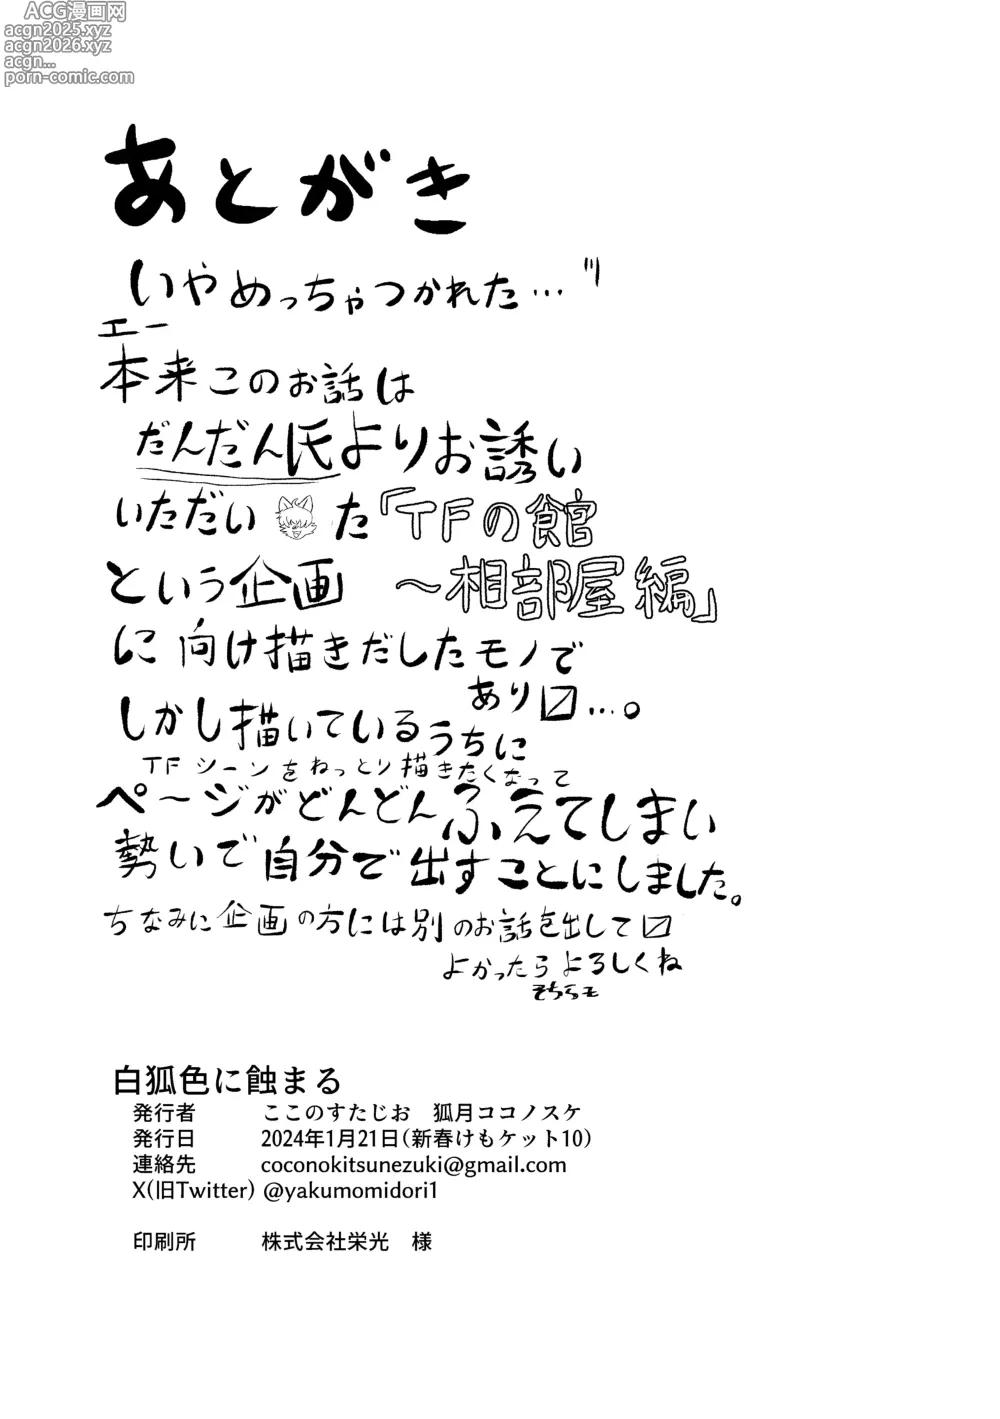 ACG漫画网
acgn2025.xyz
acgn2026.xyz
acgn...
porn-comic.com
あとがき
いやめっちゃつかれた…
エー
本来このお話は
だんだん氏よりお誘い
いただいた「TFの館
という企画 ～相部屋編」
に向け描きだしたモノで
あり〼…。
しかし描いているうちに
TFシーンをねっとり描きたくなって
ページがどんどんふえてしまい
勢いで自分で出すことにしました。
ちなみに企画の方には別のお話を出して〼
よかったらよろしくね
そちらも
白狐色に蝕まる
発行者 ここのすたじお 狐月ココノスケ
発行日 2024年1月21日(新春けもケット10)
連絡先 coconokitsunezuki@gmail.com
X(旧Twitter) @yakumomidori1
印刷所 株式会社栄光 様